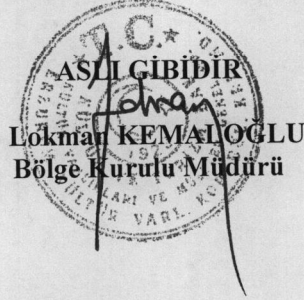 T.C.
ASLI GİBİDİR
Lokman KEMALOĞLU
Bölge Kurulu Müdürü